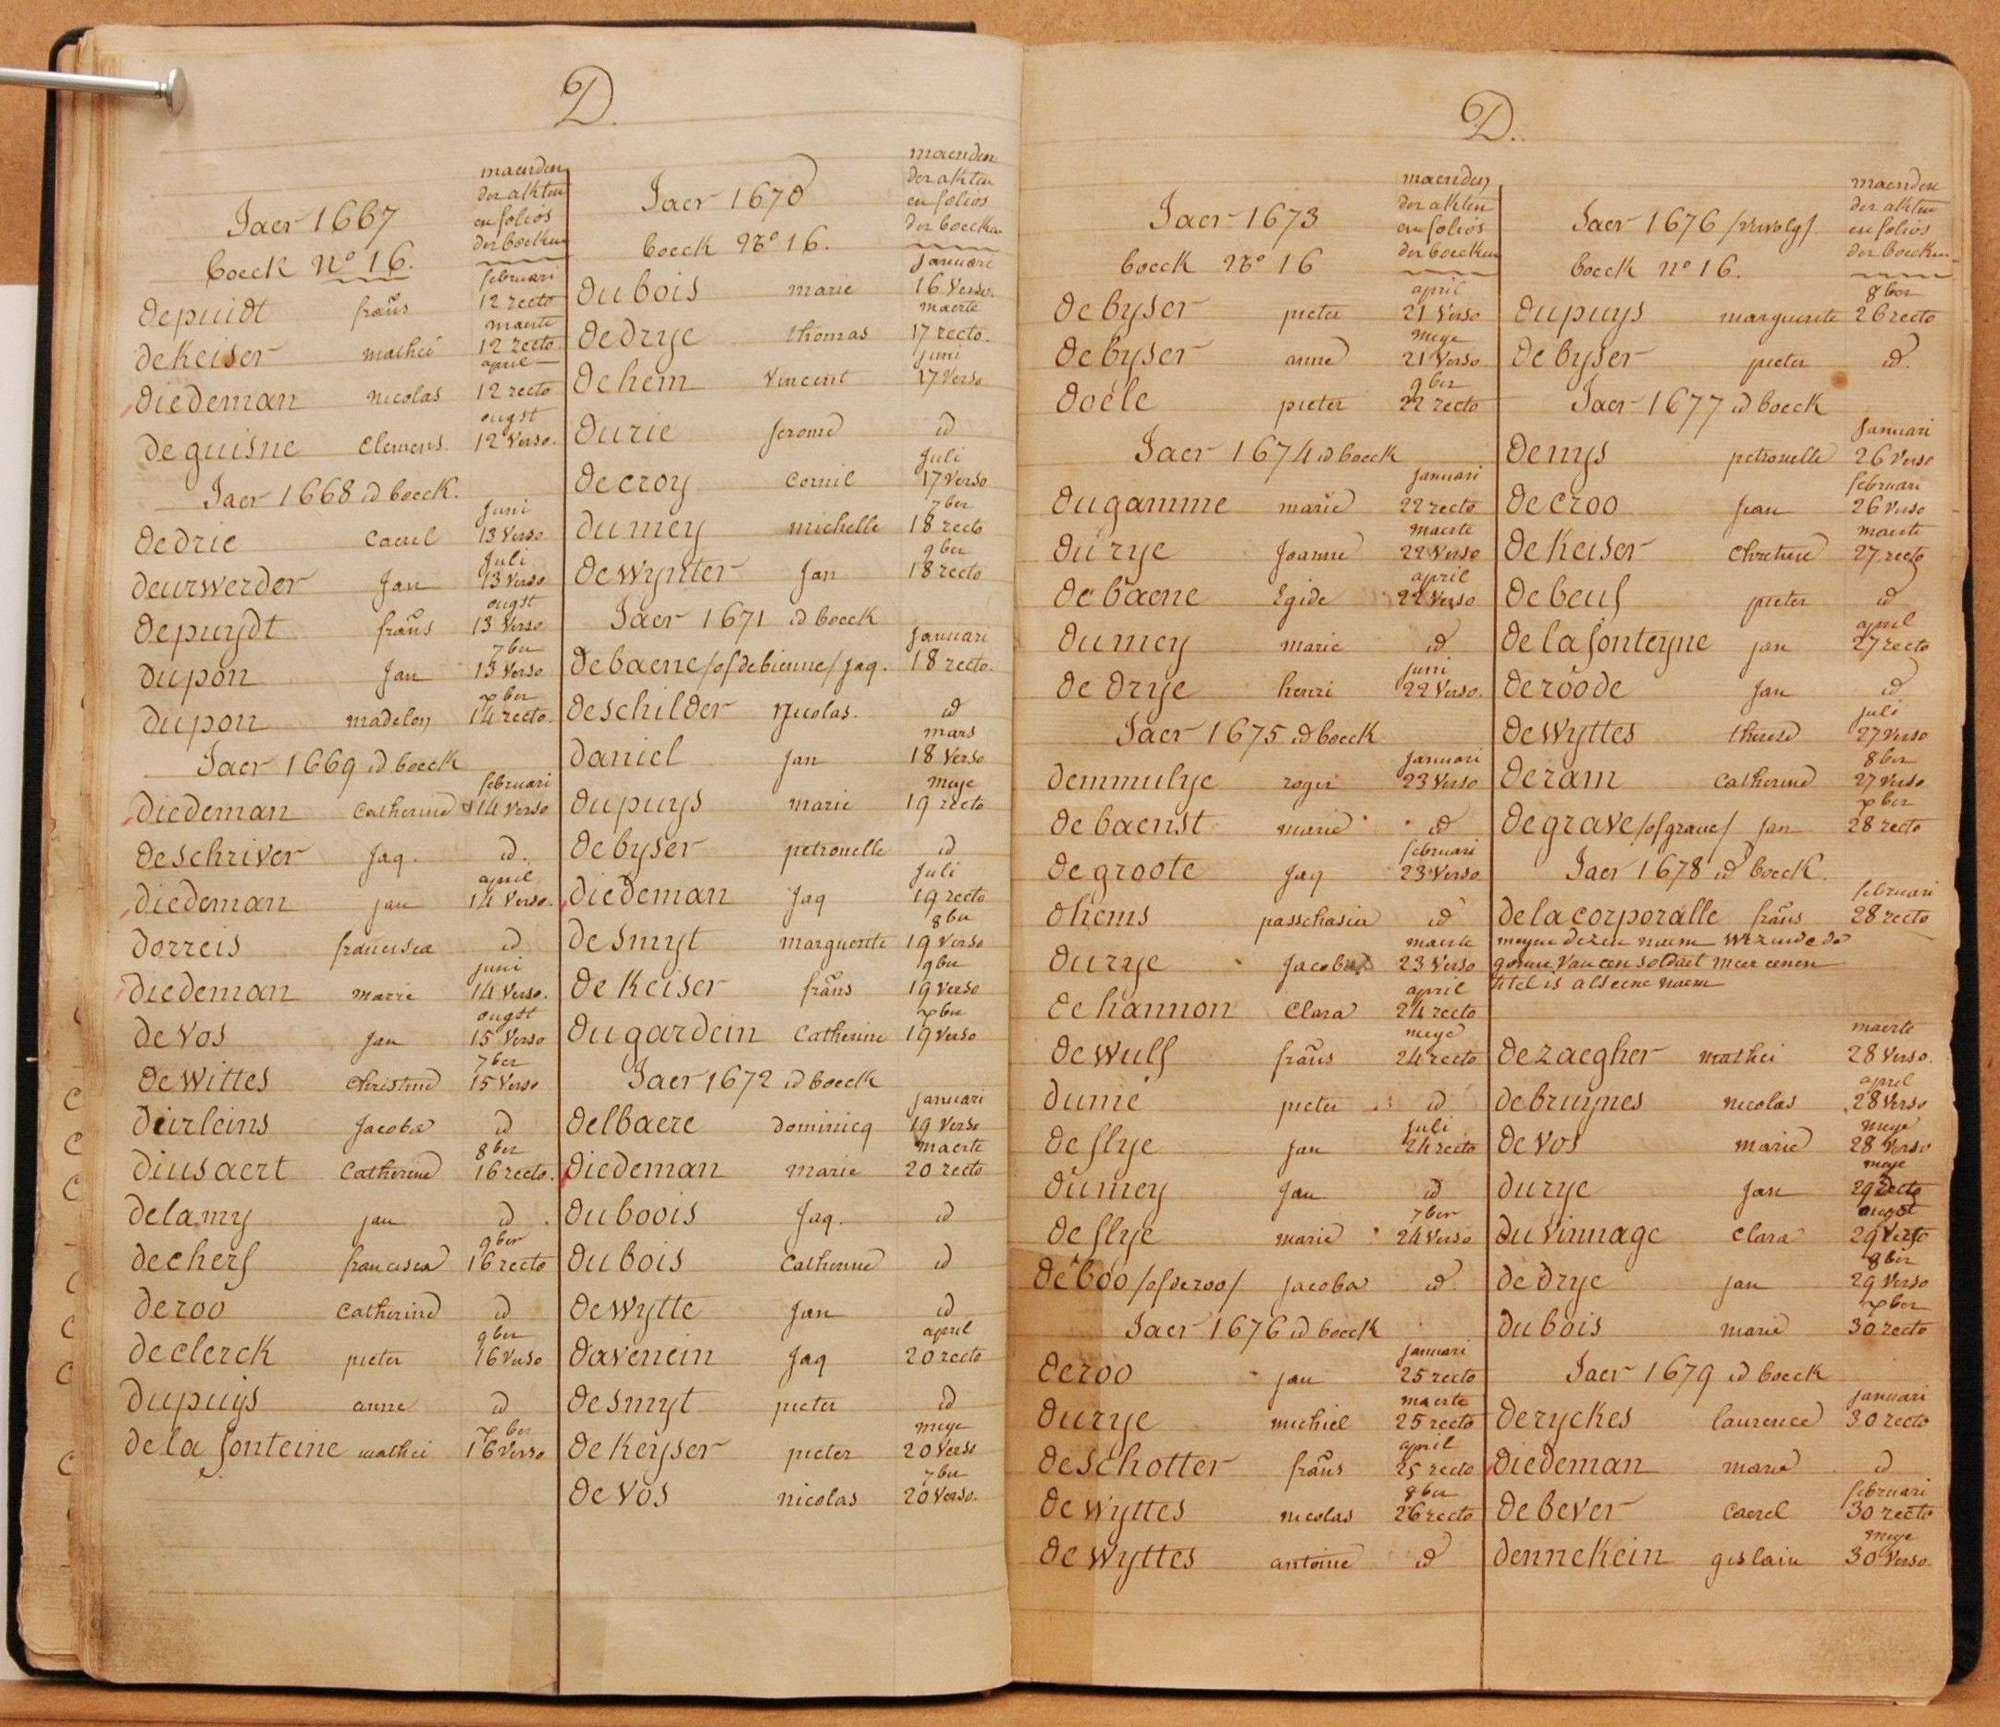 D.
maenden
der akten
en folios
der boeken
Jaer 1667
boeck No 16.
februari
depuidt frans 12 recto
maerte
deKeiser mathei 12 recto
april
diedeman nicolas 12 recto
ougst
deguisne Clemens 12 Verso.
Jaer 1668 id boeck.
Juni
dedrie Caerel 13 Verso
Juli
deurwerder Jan 13 Verso
ougst
depuydt frans 13 Verso
7ber
dupon Jan 13 Verso
xber
dupon madelon 14 recto.
Jaer 1669 id boeck
februari
diedeman Catherine 14 Verso
deschriver Jaq. id.
april
diedeman jan 14 Verso.
dorreis francisca id
juni
diedeman marie 14 Verso.
ougst
devos Jan 15 Verso
7ber
dewittes Christine 15 Verso
deirleins Jacoba id
8ber
diusaert Catherine 16 recto.
delamy jan id
9ber
decherf francisca 16 recto
deroo Catherine id
9ber
declerck pieter 16 Verso
dupuijs anne id
xber
delafonteine mathei 16 Verso
maenden
der akten
en folios
der boecken
Jaer 1670
boeck No 16.
Januari
dubois marie 16 Verso.
maerte
dedrije thomas 17 recto.
juni
dehem Vincent 17 Verso
durie Jerome id
Juli
decroij Cornil 17 Verso
7ber
dumey michelle 18 recto
9ber
dewynter Jan 18 recto
Jaer 1671 id boeck
Januari
debaene /of debienne/ jaq. 18 recto.
deschilder Nicolas. id
mars
daniel Jan 18 Verso
meye
dupuys marie 19 recto
debyser petronelle id
Juli
diedeman Jaq 19 recto
8ber
desmyt marguerite 19 Verso
9ber
deKeiser frans 19 Verso
xber
dugardein Catherine 19 Verso
Jaer 1672 id boeck
januari
delbaere dominicq 19 Verso
maerte
diedeman marie 20 recto
duboois Jaq. id
dubois Catherine id
dewytte Jan id
april
davenein Jaq 20 recto
desmyt pieter id
meye
deKeyser pieter 20 Verso
7ber
devos nicolas 20 Verso.
D.
maenden
der akten
en folios
der boecken
Jaer 1673
boeck No 16
april
debyser pieter 21 Verso
meye
debyser anne 21 Verso
9ber
doële pieter 22 recto
Jaer 1674 id boeck
Januari
dugamme marie 22 recto
maerte
durye Joanne 22 Verso
april
debaene Egide 22 Verso
dumey marie id
juni
dedrye henri 22 Verso.
Jaer 1675 id boeck
Januari
demmulye roger 23 Verso
debaenst marie id
februari
degroote Jaq 23 Verso
dhems passchasia id
maerte
durye Jacoba 23 Verso
april
dehannon Clara 24 recto
meye
dewulf frans 24 recto
dumé pieter id
Juli
deflye Jan 24 recto
dumey Jan id
7ber
deflye marie 24 Verso
deboo /of deroo/ Jacoba id
Jaer 1676 id boeck
januari
deroo jan 25 recto
maerte
durye michiel 25 recto
april
deschotter frans 25 recto
8ber
dewyttes nicolas 26 recto
dewyttes antoine id
maenden
der akten
en folios
der boecken
Jaer 1676 /vervolg/
boeck no 16.
8ber
dupuys marguerite 26 recto
debyser pieter id.
Jaer 1677 id boeck
Januari
denys petronelle 26 Verso
februari
decroo Jean 26 Verso
maerte
deKeiser Chretine 27 recto
debeuf pieter id
april
delafonteyne jan 27 recto
deroode Jan id
juli
dewyttes therese 27 Verso
8ber
deram Catherine 27 Verso
xber
degrave /of grave/ Jan 28 recto
Jaer 1678 id boeck.
februari
delacorporalle frans 28 recto
meyne dezen naem wezende de
gonne van een soldaet meer eenen
titel is als eene naem
maerte
dezaegher mathei 28 Verso.
april
debruynes nicolas 28 Verso
meye
devos marie 28 Verso
meye
durye Jan 29 recto
ougst
duVinnage Clara 29 Verso
8ber
dedrye jan 29 Verso
xber
dubois marie 30 recto
Jaer 1679 id boeck
januari
deryckes laurence 30 recto
diedeman marie id
februari
debever Caerel 30 recto
meye
denneKein gislain 30 Verso.